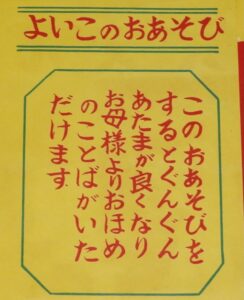 よいこのおあそび
このおあそびを
するとぐんぐん
あたまが良くなり
お母様よりおほめ
のことばがいた
だけます